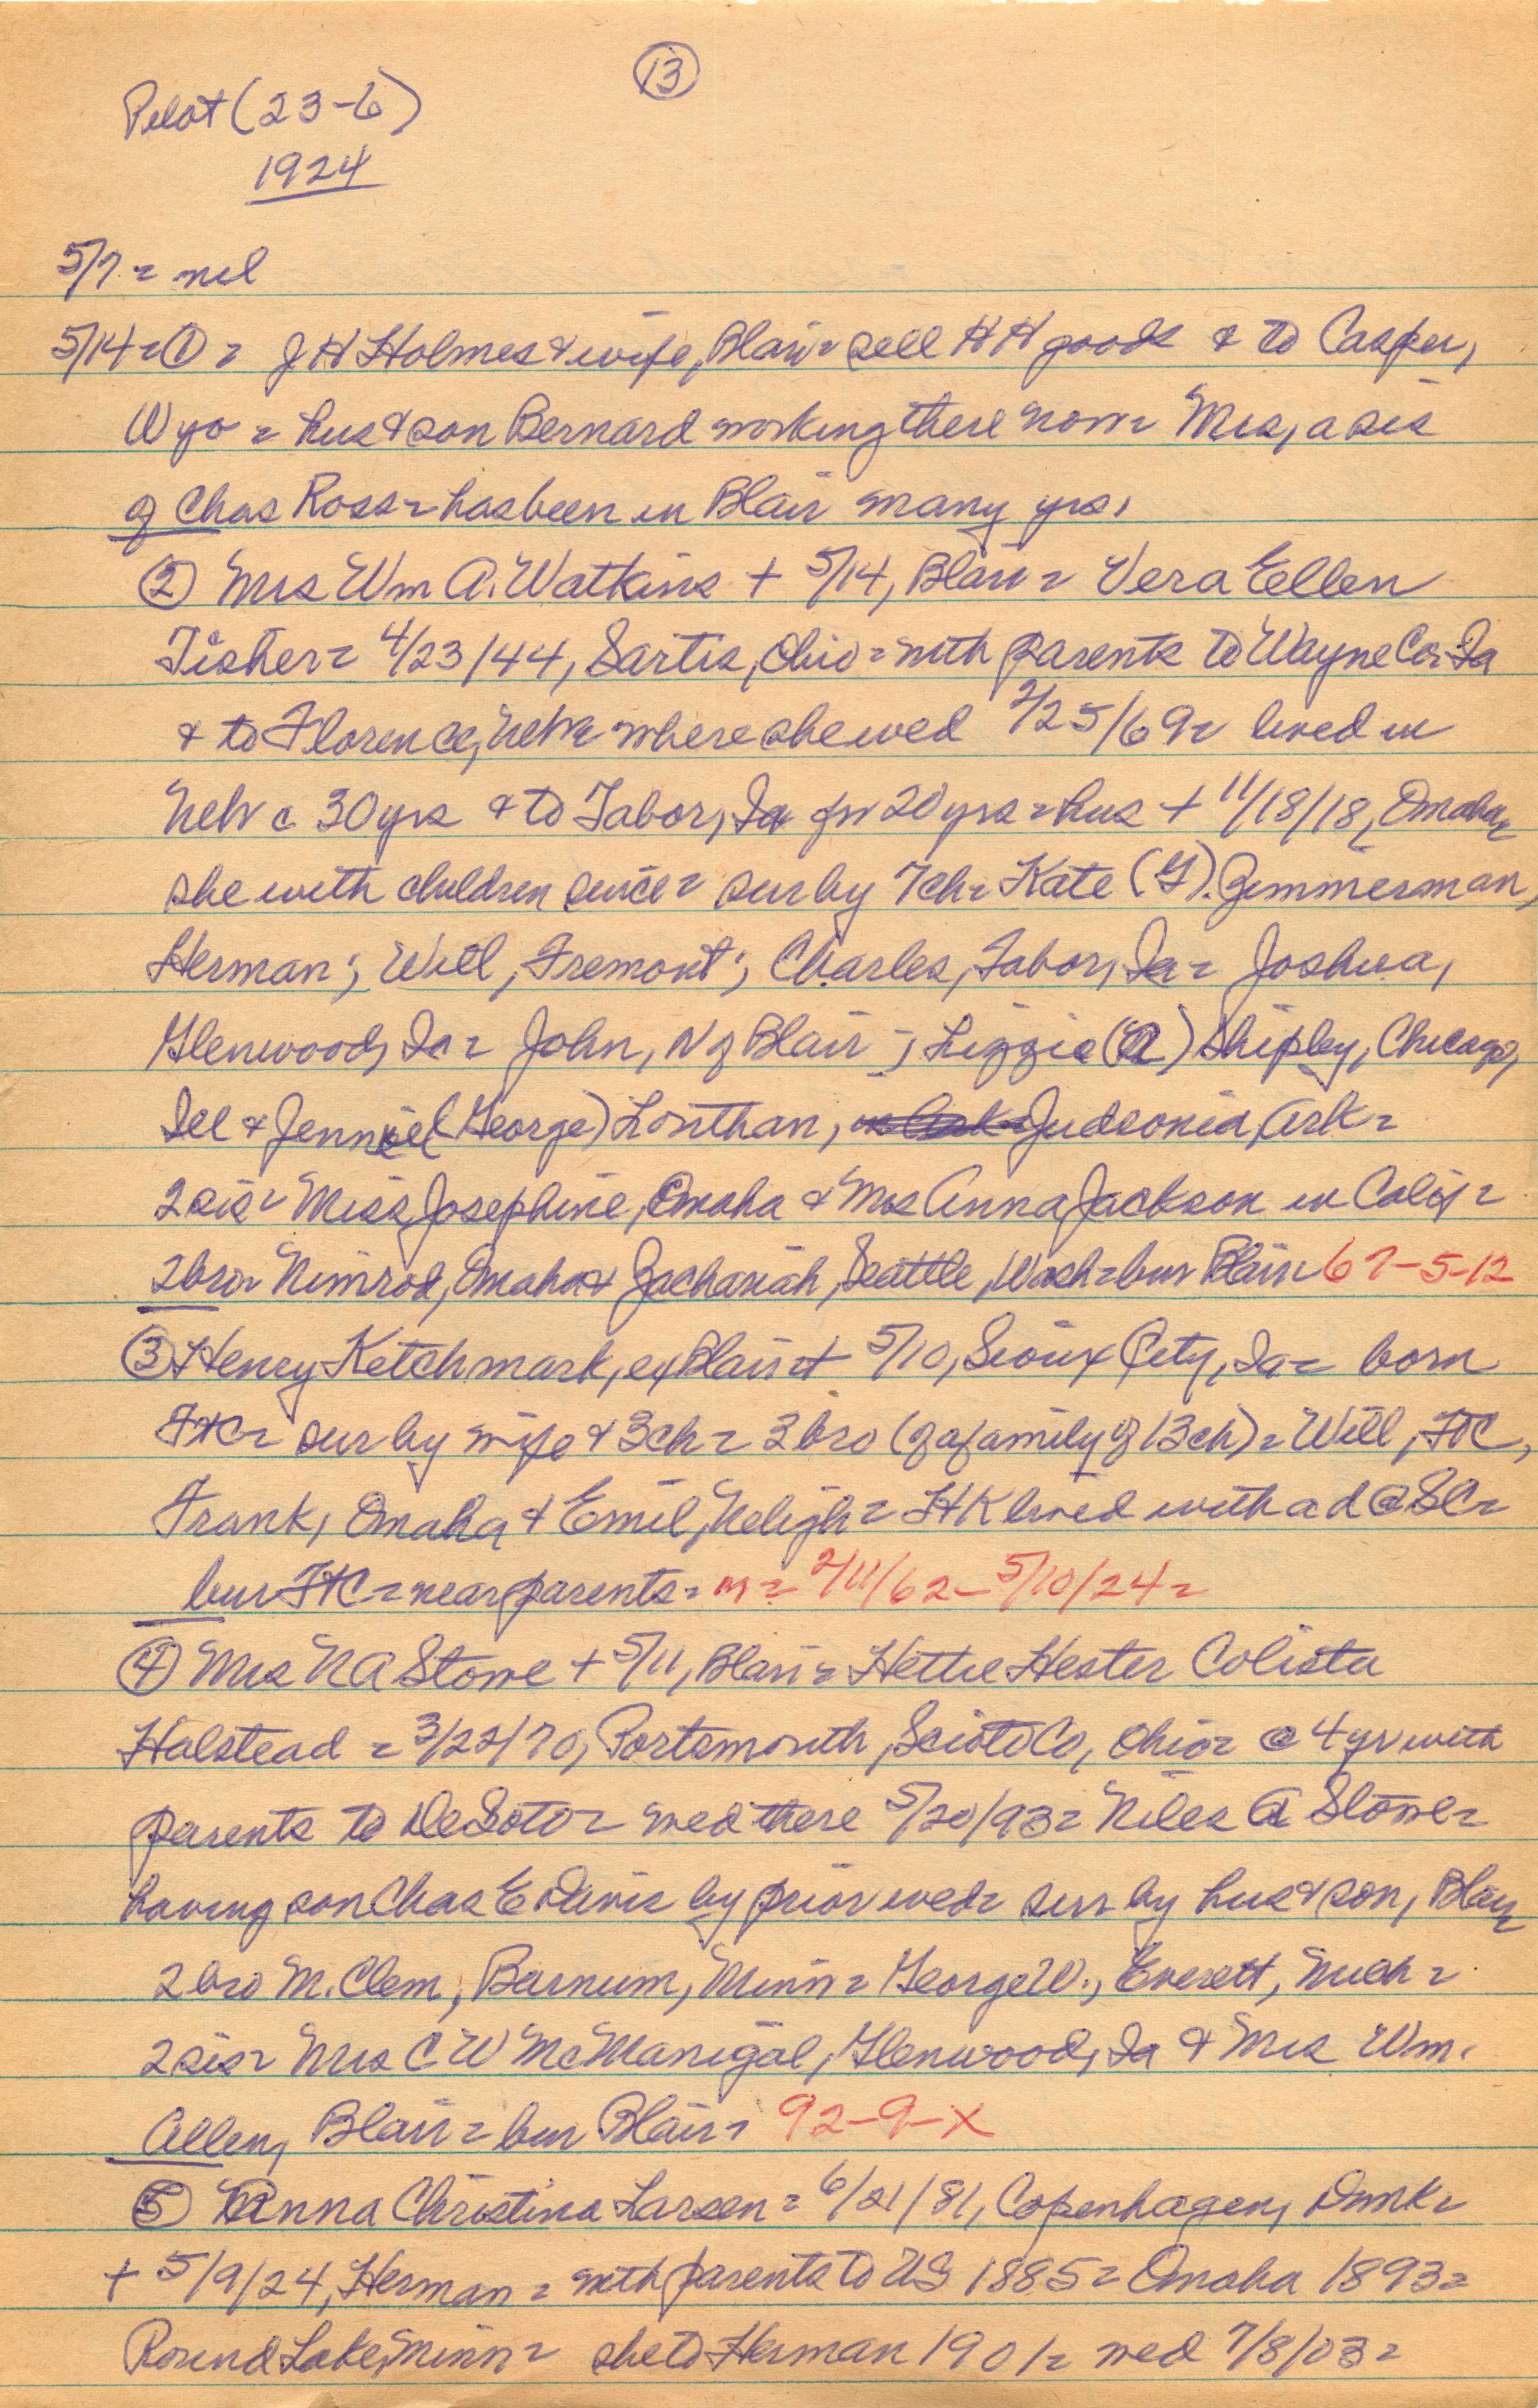 13
Pilot (23-6)
1924
5/7 = nil
5/14 = ① = J H Holmes & wife, Blair = sell HH goods & to Casper,
Wyo = hus & son Bernard working there now = Mrs, a sis
of Chas Ross = has been in Blair many yrs.
② Mrs Wm A. Watkins + 5/14, Blair = Vera Eellen
Fisher = 4/23/44, Sartis, Ohio = with parents to Wayne Co. Ia
& to Florence, Nebr where she wed 2/25/69 = lived in
Neb c 30 yrs & to Tabor, Ia for 20 yrs = hus + 11/18/18, Omaha =
she with children since = sur by 7 ch = Kate (G). Zimmerman,
Herman; Will, Fremont; Charles, Tabor, Ia = Joshua,
Glenwood, Ia = John, N of Blair; Lizzie (A) Shipley, Chicago,
Ill & Jennie (George) Lonthan, Judsonia, Ark =
2 sis = Miss Josephine, Omaha & Mrs Anna Jackson in Calif =
2 bro = Nimrod, Omaha & Zachariah, Seattle, Wash = bur Blair 67-5-12
③ Henry Ketchmark, ex Blair + 5/10, Sioux City, Ia = born
FtC = sur by wife & 3 ch = 3 bro (of a family of 13 ch) = Will, FtC,
Frank, Omaha & Emil, Neligh = HK lived with a d @ SC =
bur FtC = near parents = m = 2/11/62 - 5/10/24 =
④ Mrs N A Stowe + 5/11, Blair = Hettie Hester Colista
Halstead = 3/22/70, Portsmouth, Scioto Co, Ohio = @ 4 yr with
parents to DeSoto = wed there 5/20/93 = Niles A Stowe =
having son Chas E by prior wed = surr by hus & son, Blair =
2 bro M. Clem, Barnum, Minn = George W., Everett, Mich =
2 sis = Mrs C W McManigal, Glenwood, Ia & Mrs Wm.
Allen, Blair = bur Blair = 92-9-X
⑤ Anna Christina Larsen = 6/21/81, Copenhagen, Dmk =
+ 5/9/24, Herman = with parents to US 1885 = Omaha 1893 =
Round Lake, Minn = she to Herman 1901 = wed 7/8/03 =